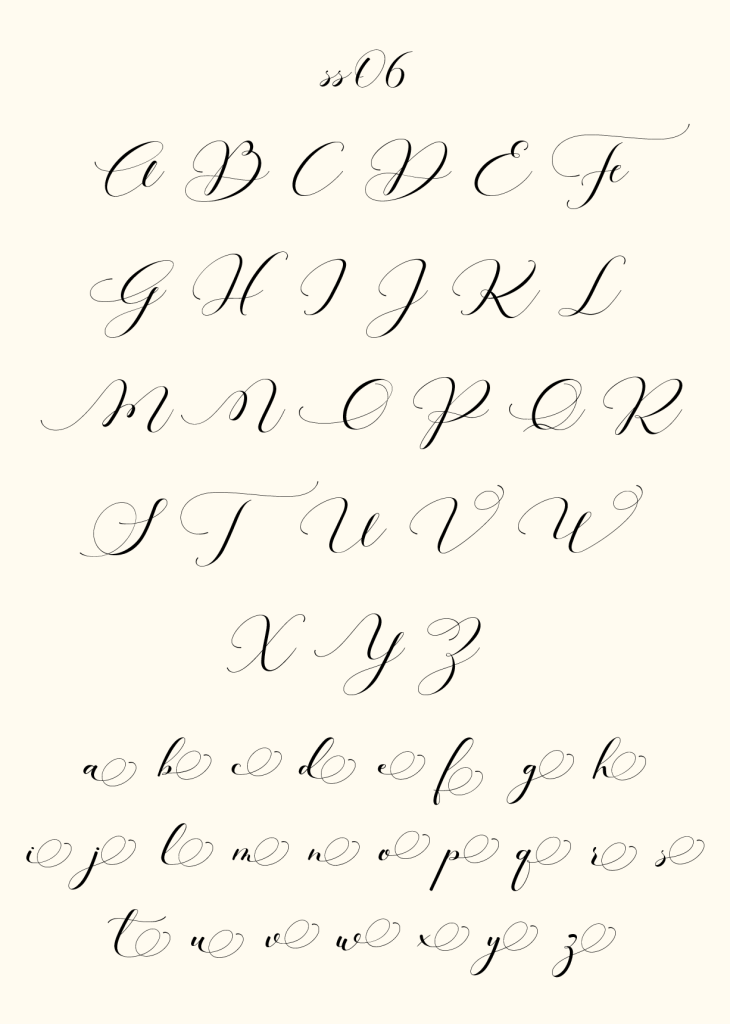 ss06
A B C D E F
G H I J K L
M N O P Q R
S T U V W
X Y Z
a b c d e f g h
i j l m n o p q r s
t u v w x y z